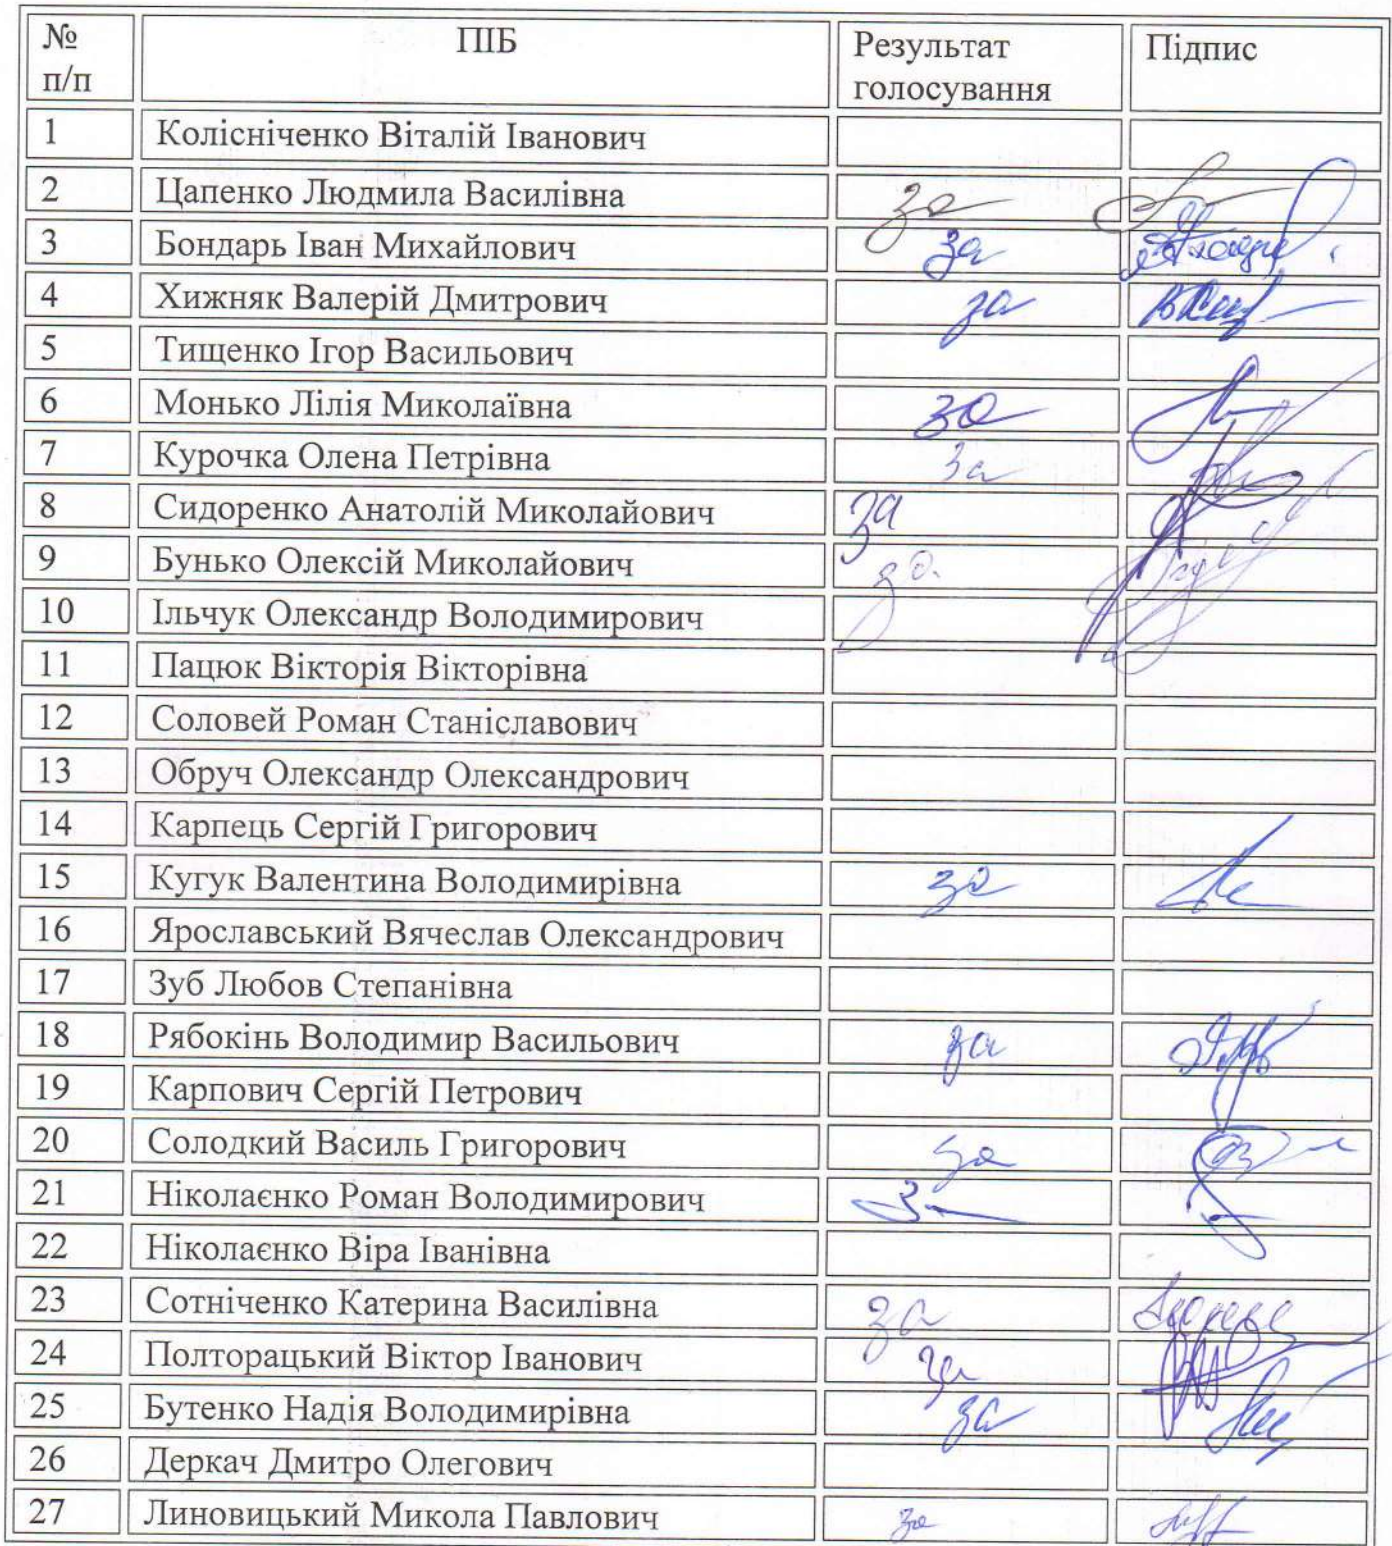 № п/п ПІБ Результат голосування Підпис
1 Колісніченко Віталій Іванович
2 Цапенко Людмила Василівна за
3 Бондарь Іван Михайлович за
4 Хижняк Валерій Дмитрович за
5 Тищенко Ігор Васильович
6 Монько Лілія Миколаївна за
7 Курочка Олена Петрівна за
8 Сидоренко Анатолій Миколайович за
9 Бунько Олексій Миколайович за.
10 Ільчук Олександр Володимирович
11 Пацюк Вікторія Вікторівна
12 Соловей Роман Станіславович
13 Обруч Олександр Олександрович
14 Карпець Сергій Григорович
15 Кугук Валентина Володимирівна за
16 Ярославський Вячеслав Олександрович
17 Зуб Любов Степанівна
18 Рябокінь Володимир Васильович за
19 Карпович Сергій Петрович
20 Солодкий Василь Григорович за
21 Ніколаєнко Роман Володимирович за
22 Ніколаєнко Віра Іванівна
23 Сотніченко Катерина Василівна за
24 Полторацький Віктор Іванович за
25 Бутенко Надія Володимирівна за
26 Деркач Дмитро Олегович
27 Линовицький Микола Павлович за